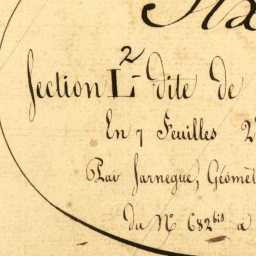 Section L² dite de
En 7 Feuilles 2
Par Jarnegue, Géomèt
Du N° 682 bis a